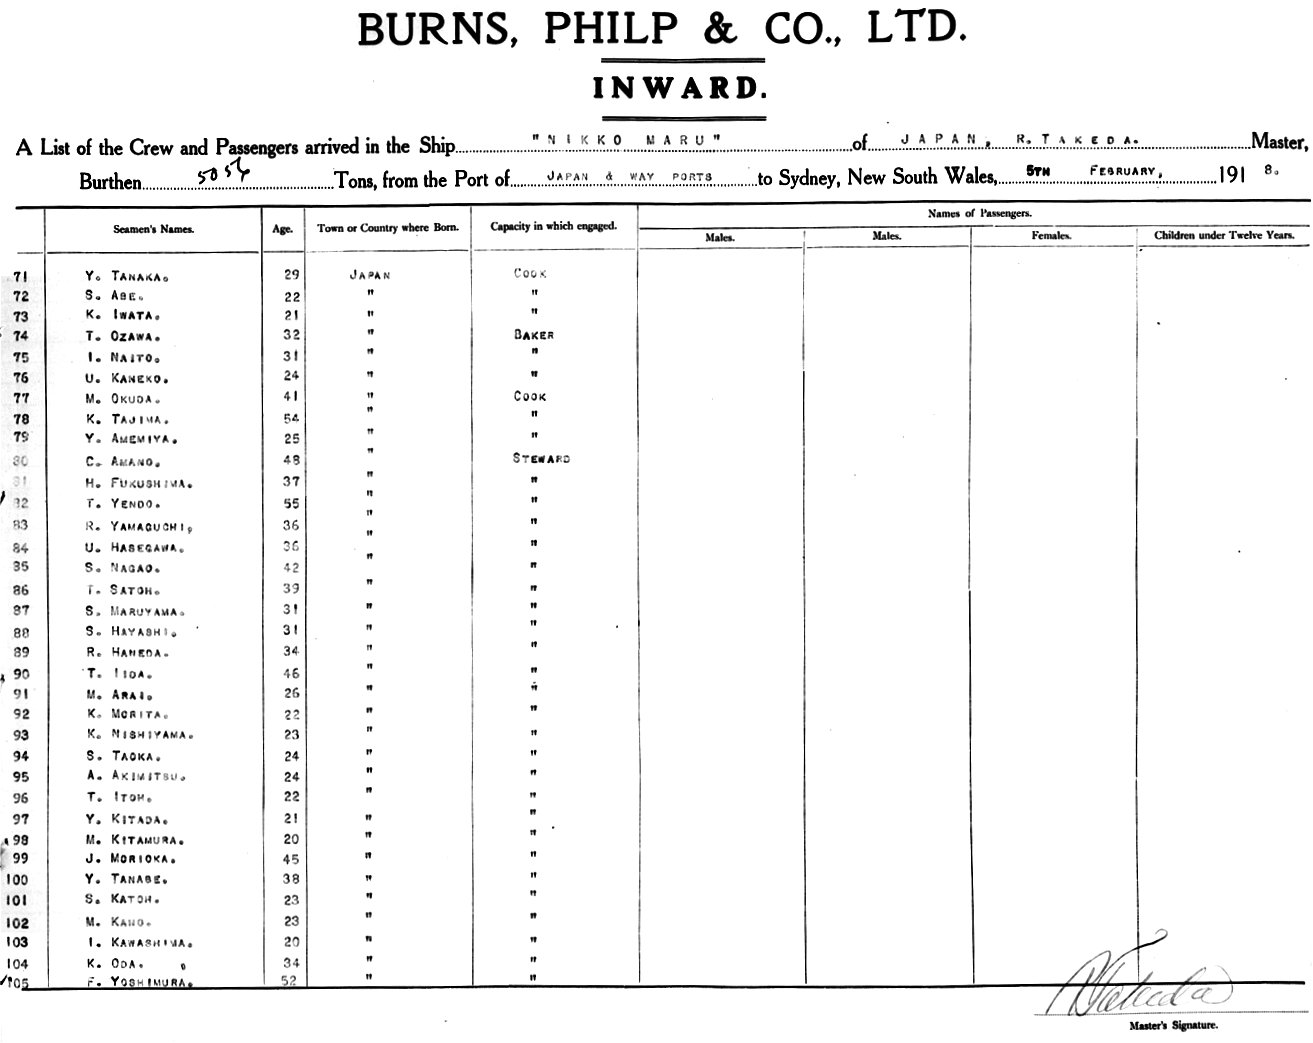 BURNS, PHILP & CO., LTD.
INWARD.
A List of the Crew and Passengers arrived in the Ship "NIKKO MARU" of JAPAN, R. TAKEDA. Master,
Burthen 5056 Tons, from the Port of JAPAN & WAY PORTS to Sydney, New South Wales, 5TH FEBRUARY, 1918.
Names of Passengers.
Seamen's Names. Age. Town or Country where Born. Capacity in which engaged. Males. Males. Females. Children under Twelve Years.
71 Y. TANAKA. 29 JAPAN COOK
72 S. ABE. 22 " "
73 K. IWATA. 21 " "
74 T. OZAWA. 32 " BAKER
75 I. NAITO. 31 " "
76 U. KANEKO. 24 " "
77 M. OKUDA. 41 " COOK
78 K. TAJIMA. 54 " "
79 Y. AMEMIYA. 25 " "
80 C. AMANO. 48 " STEWARD
81 H. FUKUSHIMA. 37 " "
82 T. YENDO. 55 " "
83 R. YAMAGUCHI, 36 " "
84 U. HASEGAWA. 36 " "
85 S. NAGAO. 42 " "
86 T. SATOH. 39 " "
87 S. MARUYAMA. 31 " "
88 S. HAYASHI. 31 " "
89 R. HANEDA. 34 " "
90 T. IIDA. 46 " "
91 M. ARAI. 26 " "
92 K. MORITA. 22 " "
93 K. NISHIYAMA. 23 " "
94 S. TAOKA. 24 " "
95 A. AKIMITSU. 24 " "
96 T. ITOH. 22 " "
97 Y. KITADA. 21 " "
98 M. KITAMURA. 20 " "
99 J. MORIOKA. 45 " "
100 Y. TANABE. 38 " "
101 S. KATOH. 23 " "
102 M. KANO. 23 " "
103 I. KAWASHIMA. 20 " "
104 K. ODA. 34 " "
105 F. YOSHIMURA. 52 " "
R Takeda
Master's Signature.